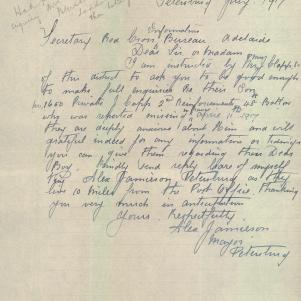 Petersburg July 1917
Information
Secretary Red Cross Bureau Adelaide
Dear Sir or Madam
I am instructed by Mrs Capp
of this district to ask you to be good enough
to make full enquiries re their Son
No 1650 Private J Capp 2nd Reinforcements 48 Batton
who was reported missing April 11. 1917
they are deeply anxious about Him and will
grateful indeed for any information or tidings
you can give them regarding their Dear
Boy. Kindly send reply Care of myself
Alex Jamieson Petersburg as they
live 10 miles from the Post Office. Thanking
you very much in anticipation
Yours Respectfully
Alex Jamieson
Mayor
Petersburg